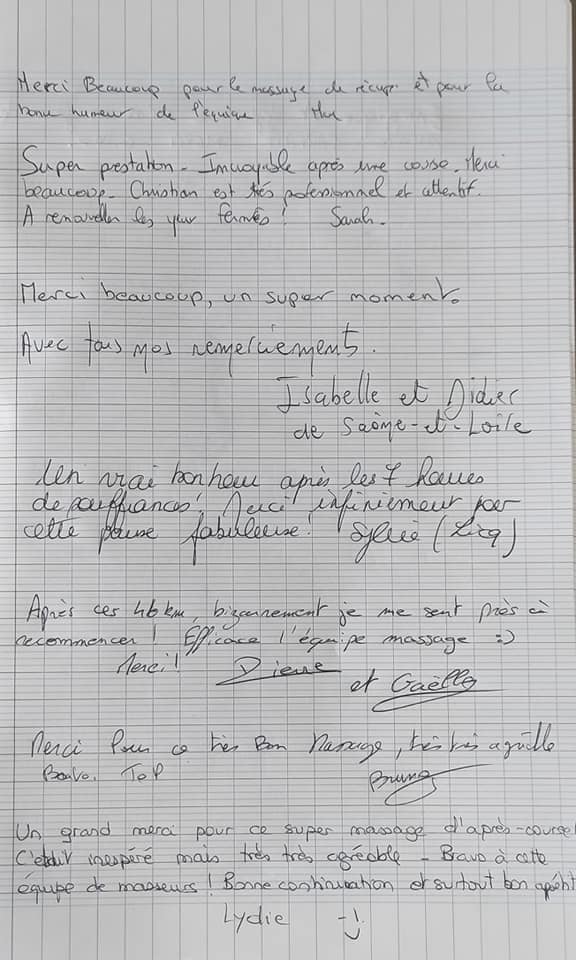 Merci Beaucoup pour le massage de récup. et pour la
bonne humeur de l'équipe
Super prestation - Incroyable après une course. Merci
beaucoup. Christian est très professionnel et attentif.
A renouveller les yeux fermés! Sarah.
Merci beaucoup, un super moment.
Avec tous mos remerciements.
Isabelle et Didier
de Saône-et-Loire
Un vrai bonheur après les 7 heures
de souffrances! Merci infiniment pour
cette pause fabuleuse! Sylvie
Après ces 46 km, bizarrement je me sent près à
recommencer! Efficace l'équipe massage =)
Merci!
et Gaëlle
Merci Pour ce très Bon Massage, très très
Bravo. ToP Bruno
Un grand merci pour ce super massage d'après-course!
C'était inespéré mais très très agréable - Bravo à cette
équipe de masseurs! Bonne continuation et surtout bon apéri!
Lydie :-)